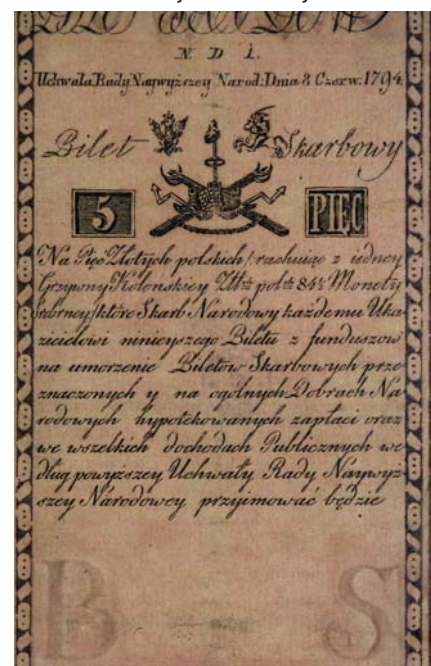 N D 1.
Uchwała Rady Naywyższey Narod: Dnia 8 Czerw: 1794
Bilet Skarbowy
5 PIĘC
Na Pięć Złotych polskich rachuiąc z iedney
Grzywny Kolonskiey Złł: pol: 84½ Monety
Srebrney, które Skarb Narodowy każdemu Uka-
zicielowi ninieyszego Biletu z funduszów
na umorzenie Biletów Skarbowych prze-
znaczonych y na ogólnych Dobrach Na-
rodowych hypotekowanych zapłaci oraz
we wszelkich dochodach Publicznych we-
dług powyższey Uchwały Rady Naywyż-
szey Narodowey przyimować będzie
B S